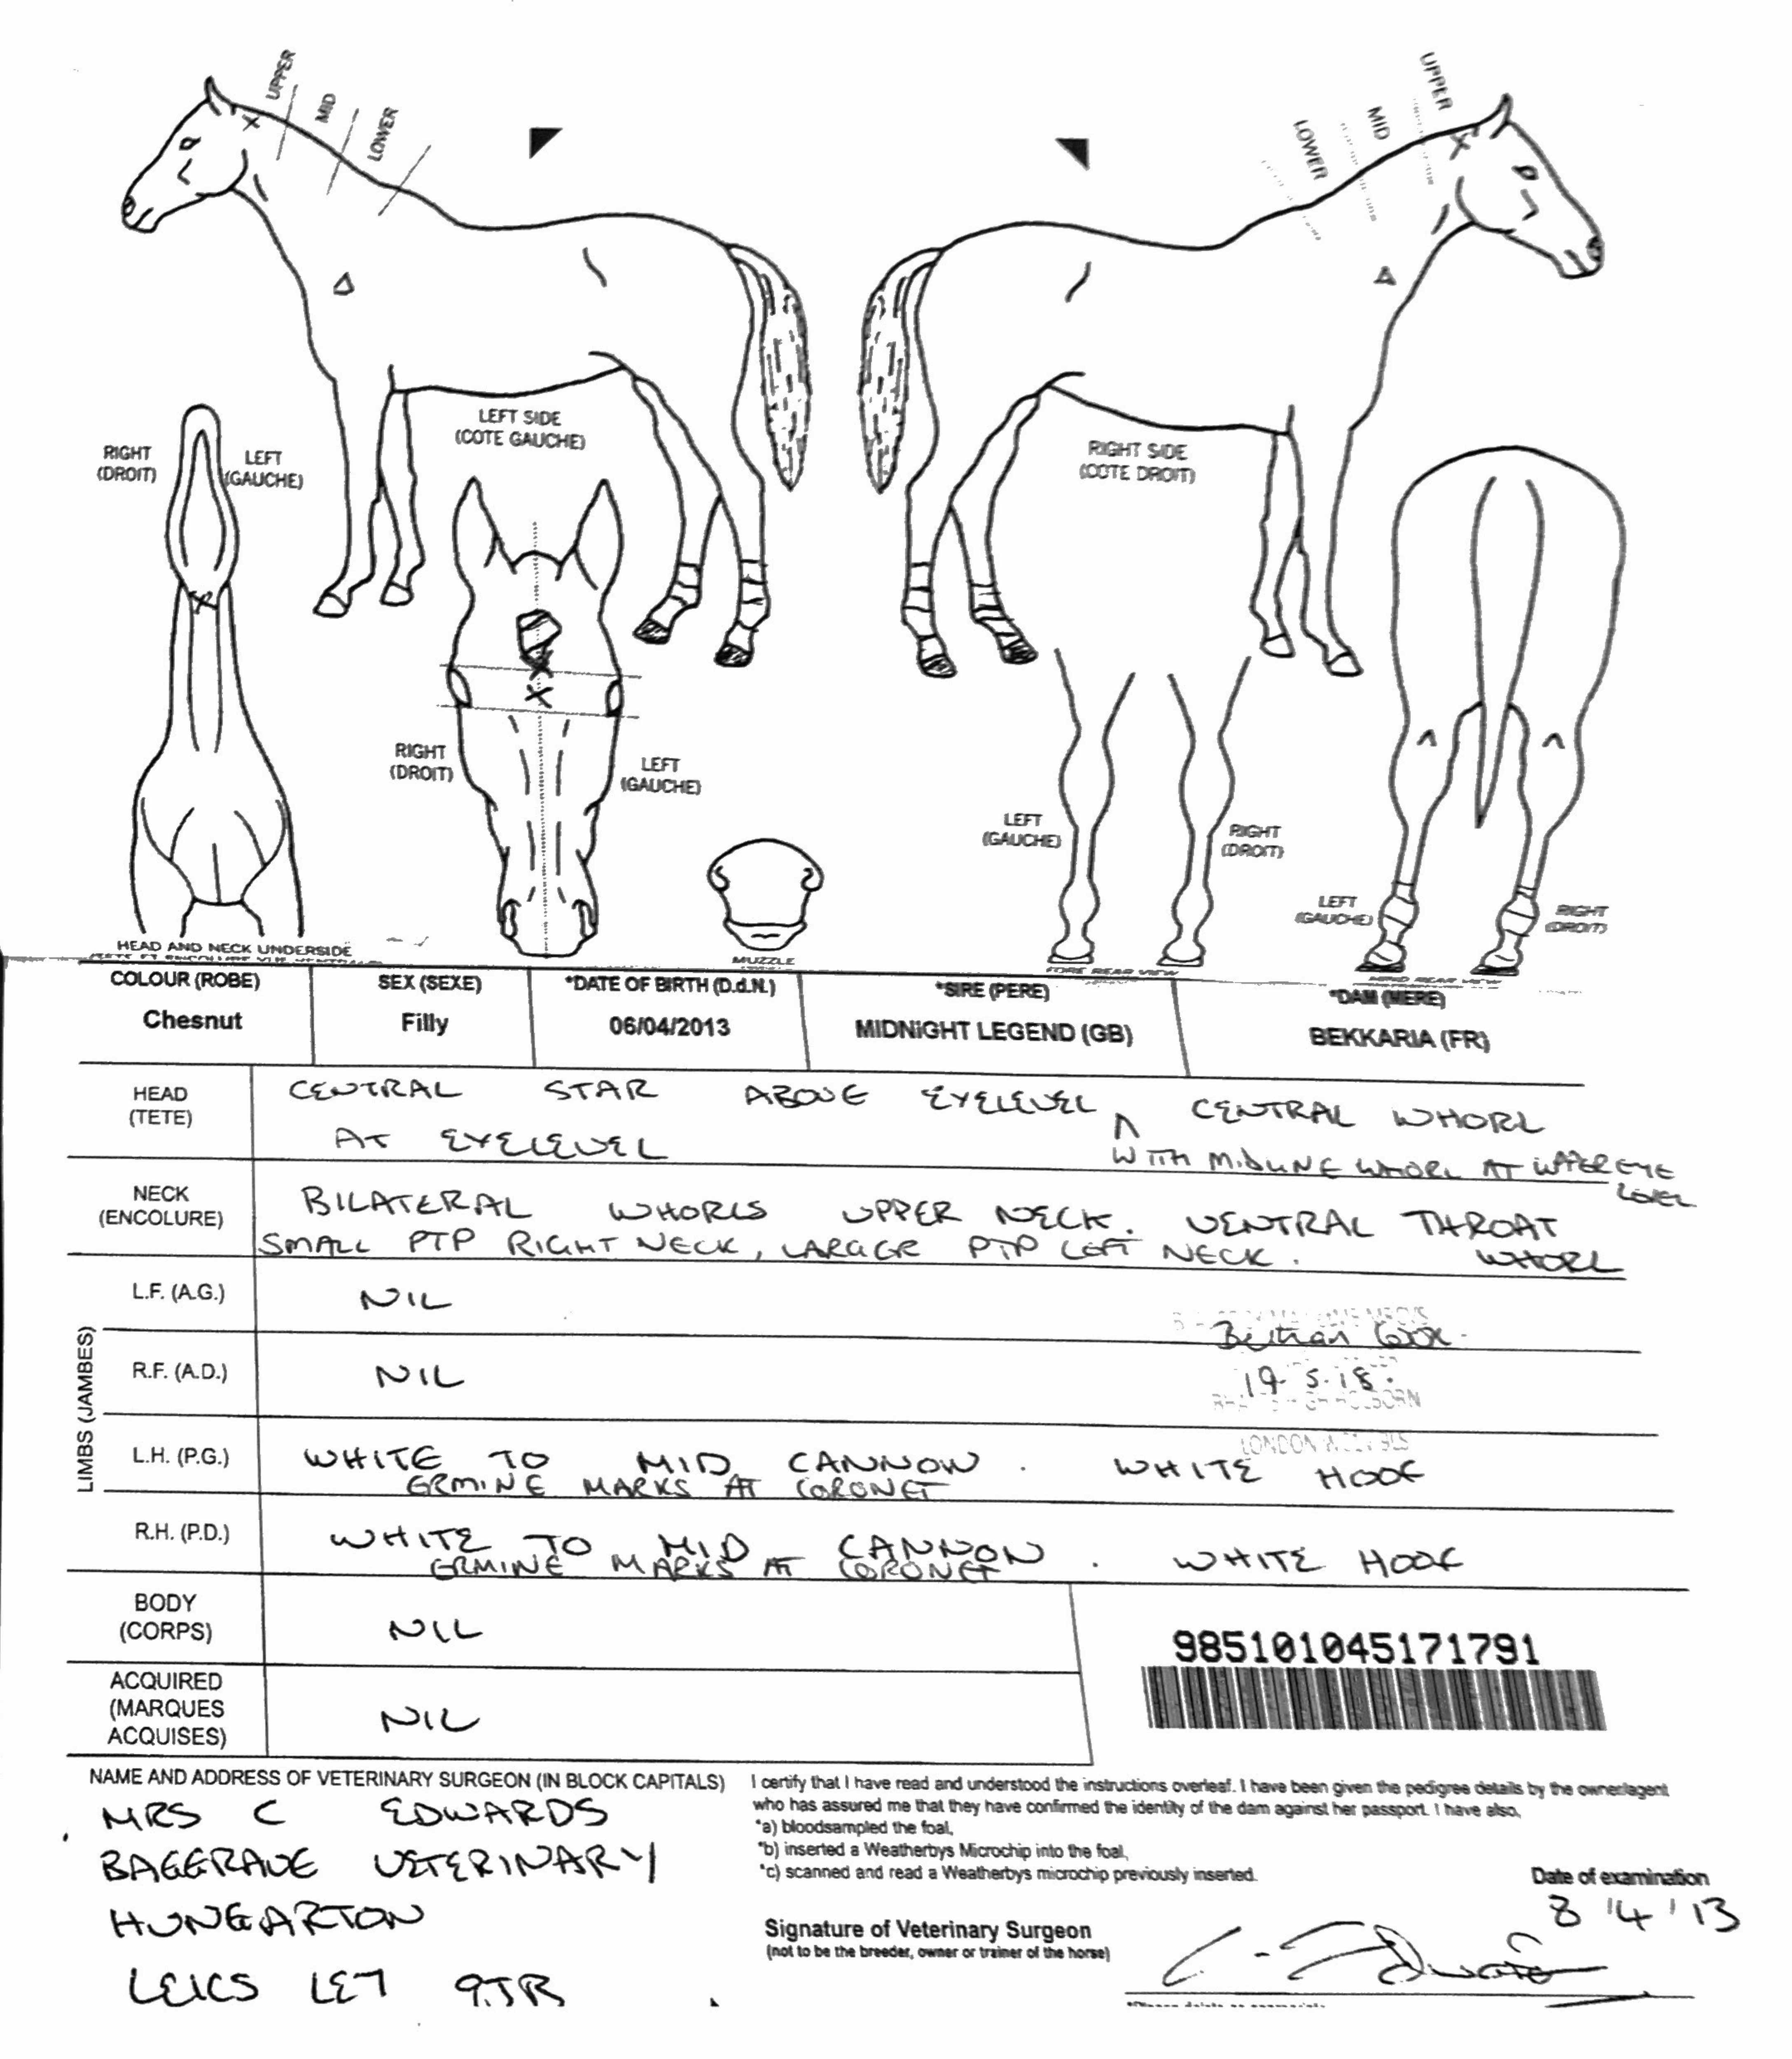 UPPER
MID
LOWER
UPPER
MID
LOWER
LEFT SIDE
(COTE GAUCHE)
RIGHT SIDE
(COTE DROIT)
RIGHT
(DROIT)
LEFT
(GAUCHE)
RIGHT
(DROIT)
LEFT
(GAUCHE)
LEFT
(GAUCHE)
RIGHT
(DROIT)
LEFT
(GAUCHE)
RIGHT
(DROIT)
HEAD AND NECK UNDERSIDE
MUZZLE
FORE REAR VIEW
HIND REAR VIEW
COLOUR (ROBE)
Chesnut
SEX (SEXE)
Filly
*DATE OF BIRTH (D.d.N.)
06/04/2013
*SIRE (PERE)
MIDNIGHT LEGEND (GB)
*DAM (MERE)
BEKKARIA (FR)
HEAD
(TETE)
CENTRAL STAR ABOVE EYELEVEL CENTRAL WHORL
AT EYELEVEL
WITH MIDLINE WHORL AT UPPER EYE
LEVEL
NECK
(ENCOLURE)
BILATERAL WHORLS UPPER NECK. VENTRAL THROAT
WHORL
SMALL PTP RIGHT NECK, LARGER PTP LEFT NECK.
LIMBS (JAMBES)
L.F. (A.G.)
NIL
R.F. (A.D.)
NIL
19.5.18.
L.H. (P.G.)
WHITE TO MID CANNON. WHITE HOOF
ERMINE MARKS AT CORONET
R.H. (P.D.)
WHITE TO MID CANNON. WHITE HOOF
ERMINE MARKS AT CORONET
BODY
(CORPS)
NIL
ACQUIRED
(MARQUES
ACQUISES)
NIL
985101045171791
NAME AND ADDRESS OF VETERINARY SURGEON (IN BLOCK CAPITALS)
MRS C EDWARDS
BAGGRAVE VETERINARY
HUNGARTON
LEICS LE7 9JR
I certify that I have read and understood the instructions overleaf. I have been given the pedigree details by the owner/agent
who has assured me that they have confirmed the identity of the dam against her passport. I have also,
*a) bloodsampled the foal,
*b) inserted a Weatherbys Microchip into the foal,
*c) scanned and read a Weatherbys microchip previously inserted.
Date of examination
8'4'13
Signature of Veterinary Surgeon
(not to be the breeder, owner or trainer of the horse)